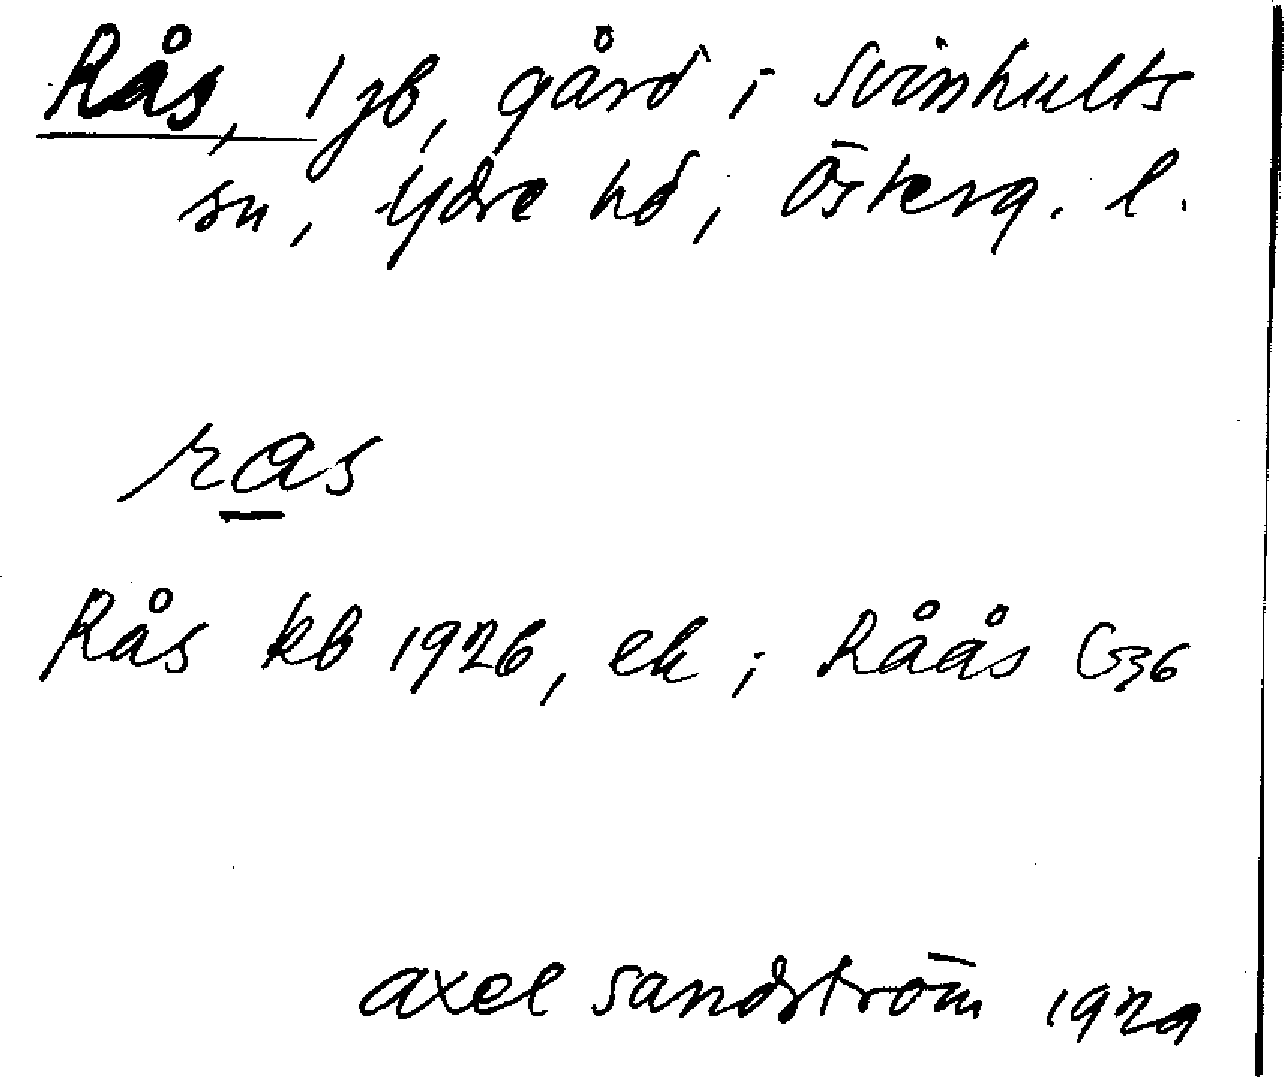 Rås, 1 jb, gård i Svinhults
sn, Ydre hd, Österg. l.
ras
Rås kb 1926, ek; Råås G36
Axel Sandström 1929